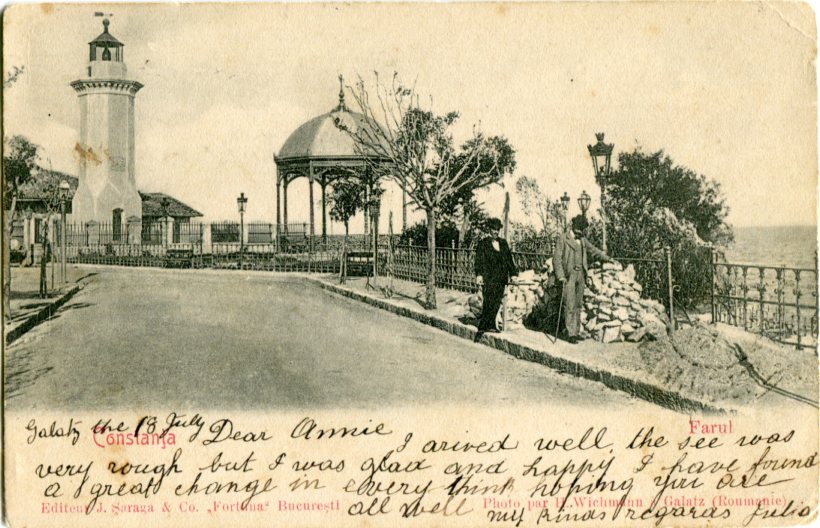 Galatz the 18 July Dear Annie
Constanţa
Farul
I arived well, the see was
very rough but I was glad and happy I have found
a great change in every think hoping you are
all well my kinds regards Julia
Editeur J. Saraga & Co. „Fortuna" Bucureşti
Photo par H. Wichmann Galatz (Roumanie)